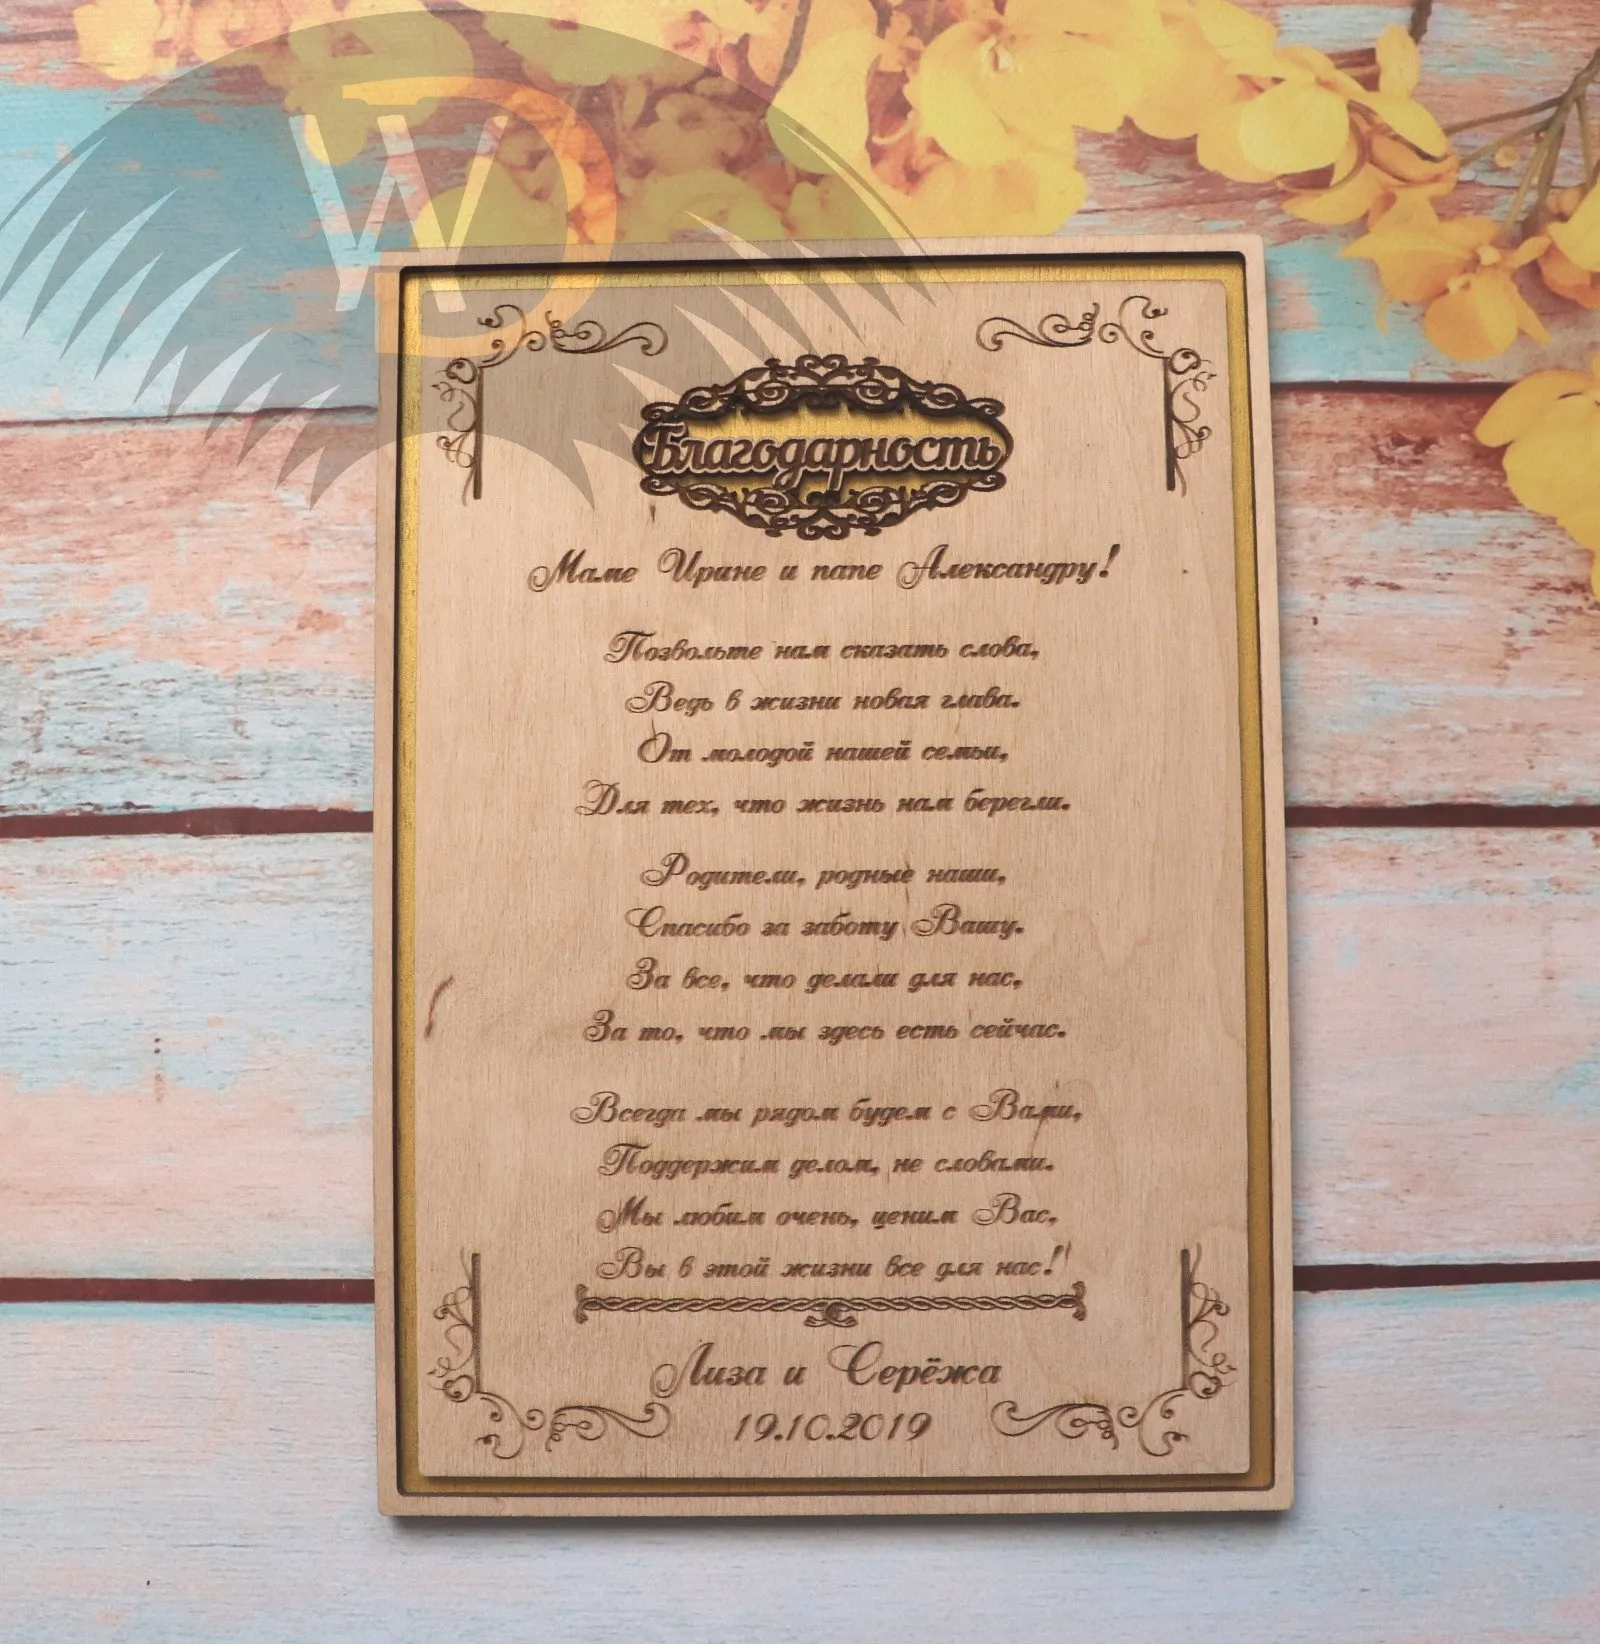 WD
Благодарность
Маме Ирине и папе Александру!
Позвольте нам сказать слова,
Ведь в жизни новая глава.
От молодой нашей семьи,
Для тех, что жизнь нам берегли.
Родители, родные наши,
Спасибо за заботу Вашу.
За все, что делали для нас,
За то, что мы здесь есть сейчас.
Всегда мы рядом будем с Вами,
Поддержим делом, не словами.
Мы любим очень, ценим Вас,
Вы в этой жизни все для нас!
Лиза и Серёжа
19.10.2019